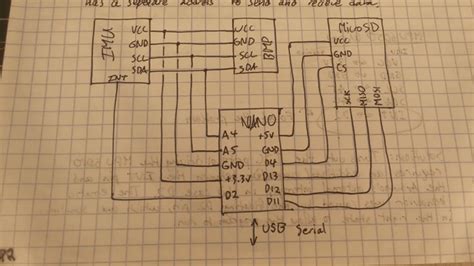 has a seperate address to send and recive data.
IMU
VCC
GND
SCL
SDA
INT
VCC
GND
SCL
SDA
BMP
MicroSD
VCC
GND
CS
SCK
MISO
MOSI
NANO
A4
A5
GND
+3.3V
D2
+5V
GND
D4
D13
D12
D11
USB Serial